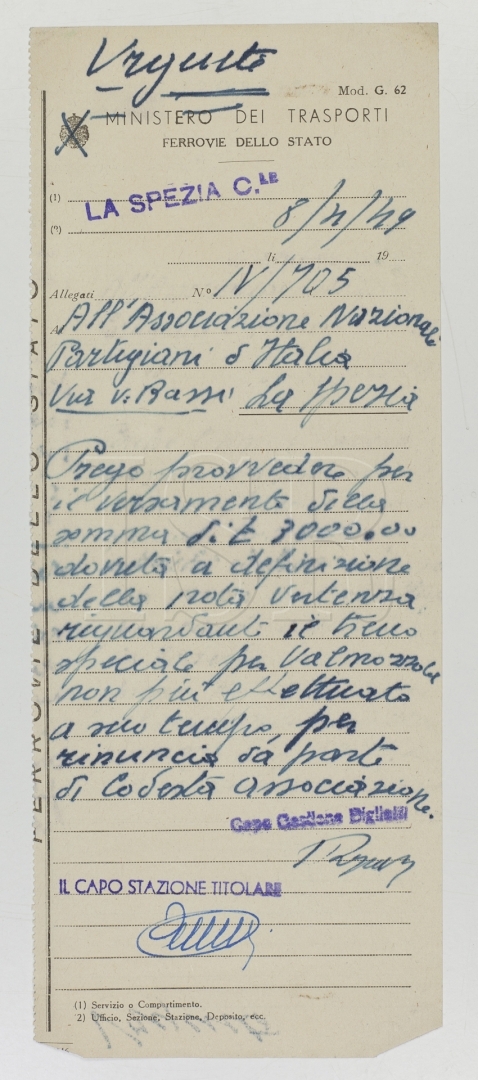 Urgente
Mod. G. 62
MINISTERO DEI TRASPORTI
FERROVIE DELLO STATO
(1)
LA SPEZIA C.LE
(2)
8/4/49
li 19
Allegati N° IV/705
A All'Associazione Nazionale
Partigiani d'Italia
Via V. Bassi La Spezia
Prego provvedere per
il versamento della
somma di £ 3000.00
dovuta a definizione
della nota vertenza
riguardante il treno
speciale per Valmozzola
non più effettuato
a suo tempo, per
rinuncia da parte
di Codesta associazione.
Capo Gestione Biglietti
IL CAPO STAZIONE TITOLARE
(1) Servizio o Compartimento.
2) Ufficio, Sezione, Stazione, Deposito, ecc.
FERROVIE DELLO STATO